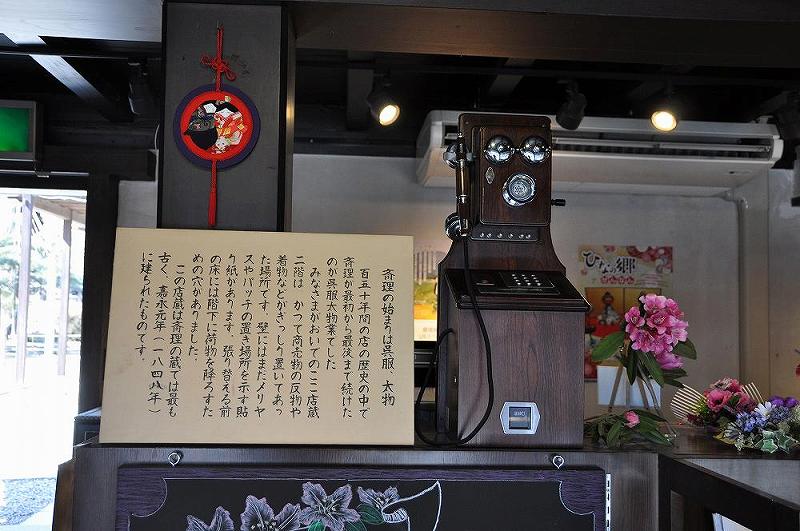 斎理の始まりは呉服、太物
百五十年間の店の歴史の中で
斎理が最初から最後まで続けた
のが呉服太物業でした
みなさまがおいでのここ店蔵
二階は かつて商売物の反物や
着物などがぎっしり置いてあっ
た場所です。壁にはまだメリヤ
スやパッチの置き場所を示す貼
り紙があります。張り替える前
の床には階下に荷物を降ろすた
めの穴がありました。
この店蔵は斎理の蔵では最も
古く、嘉永元年（一八四八年）
に建られたものです。
ひなの郷